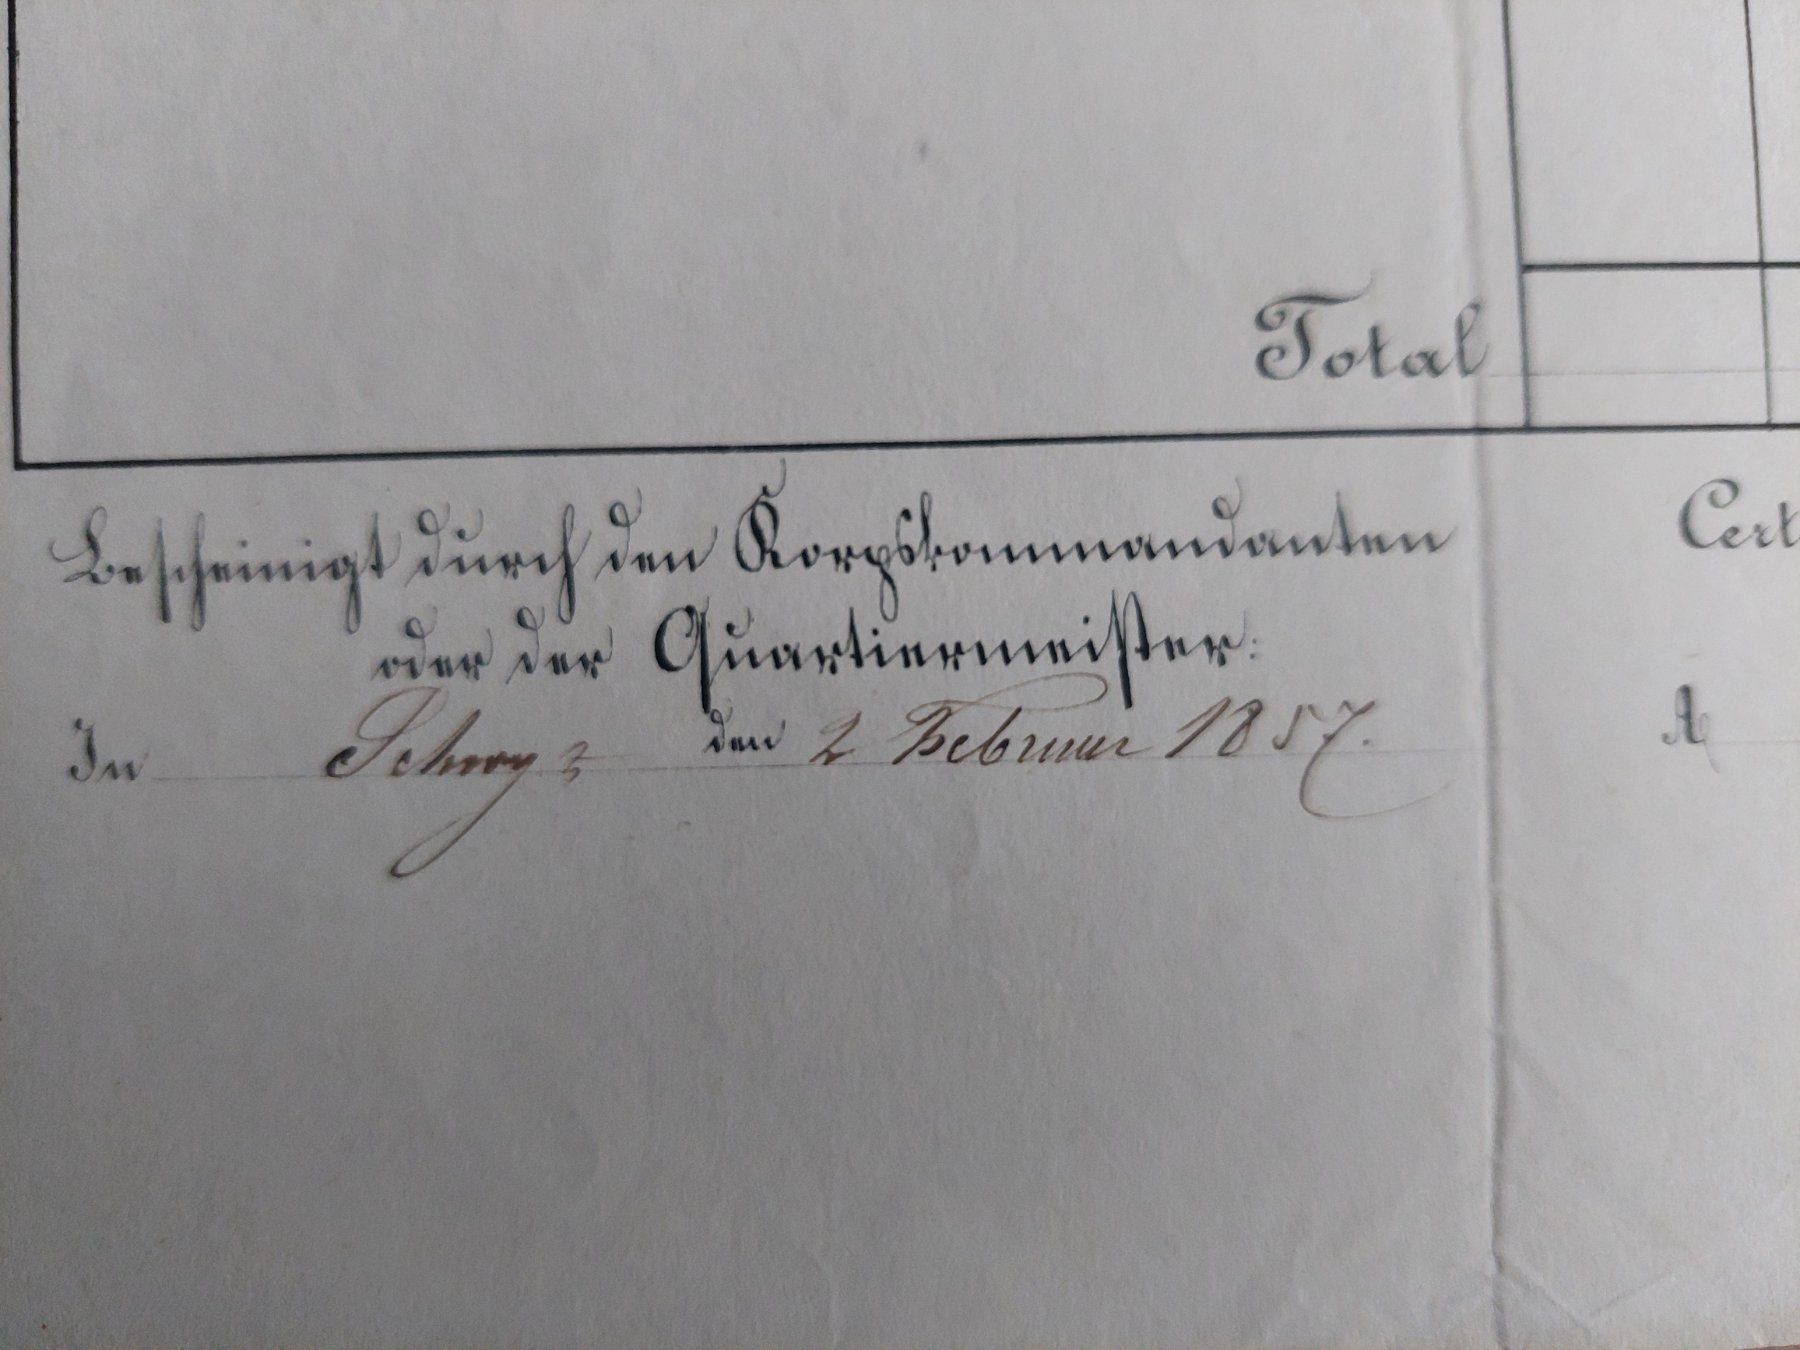 Total
Bescheinigt durch den Korpskommandanten
oder der Quartiermeister:
In Schwyz den 2 Februar 1857.
Cert
A